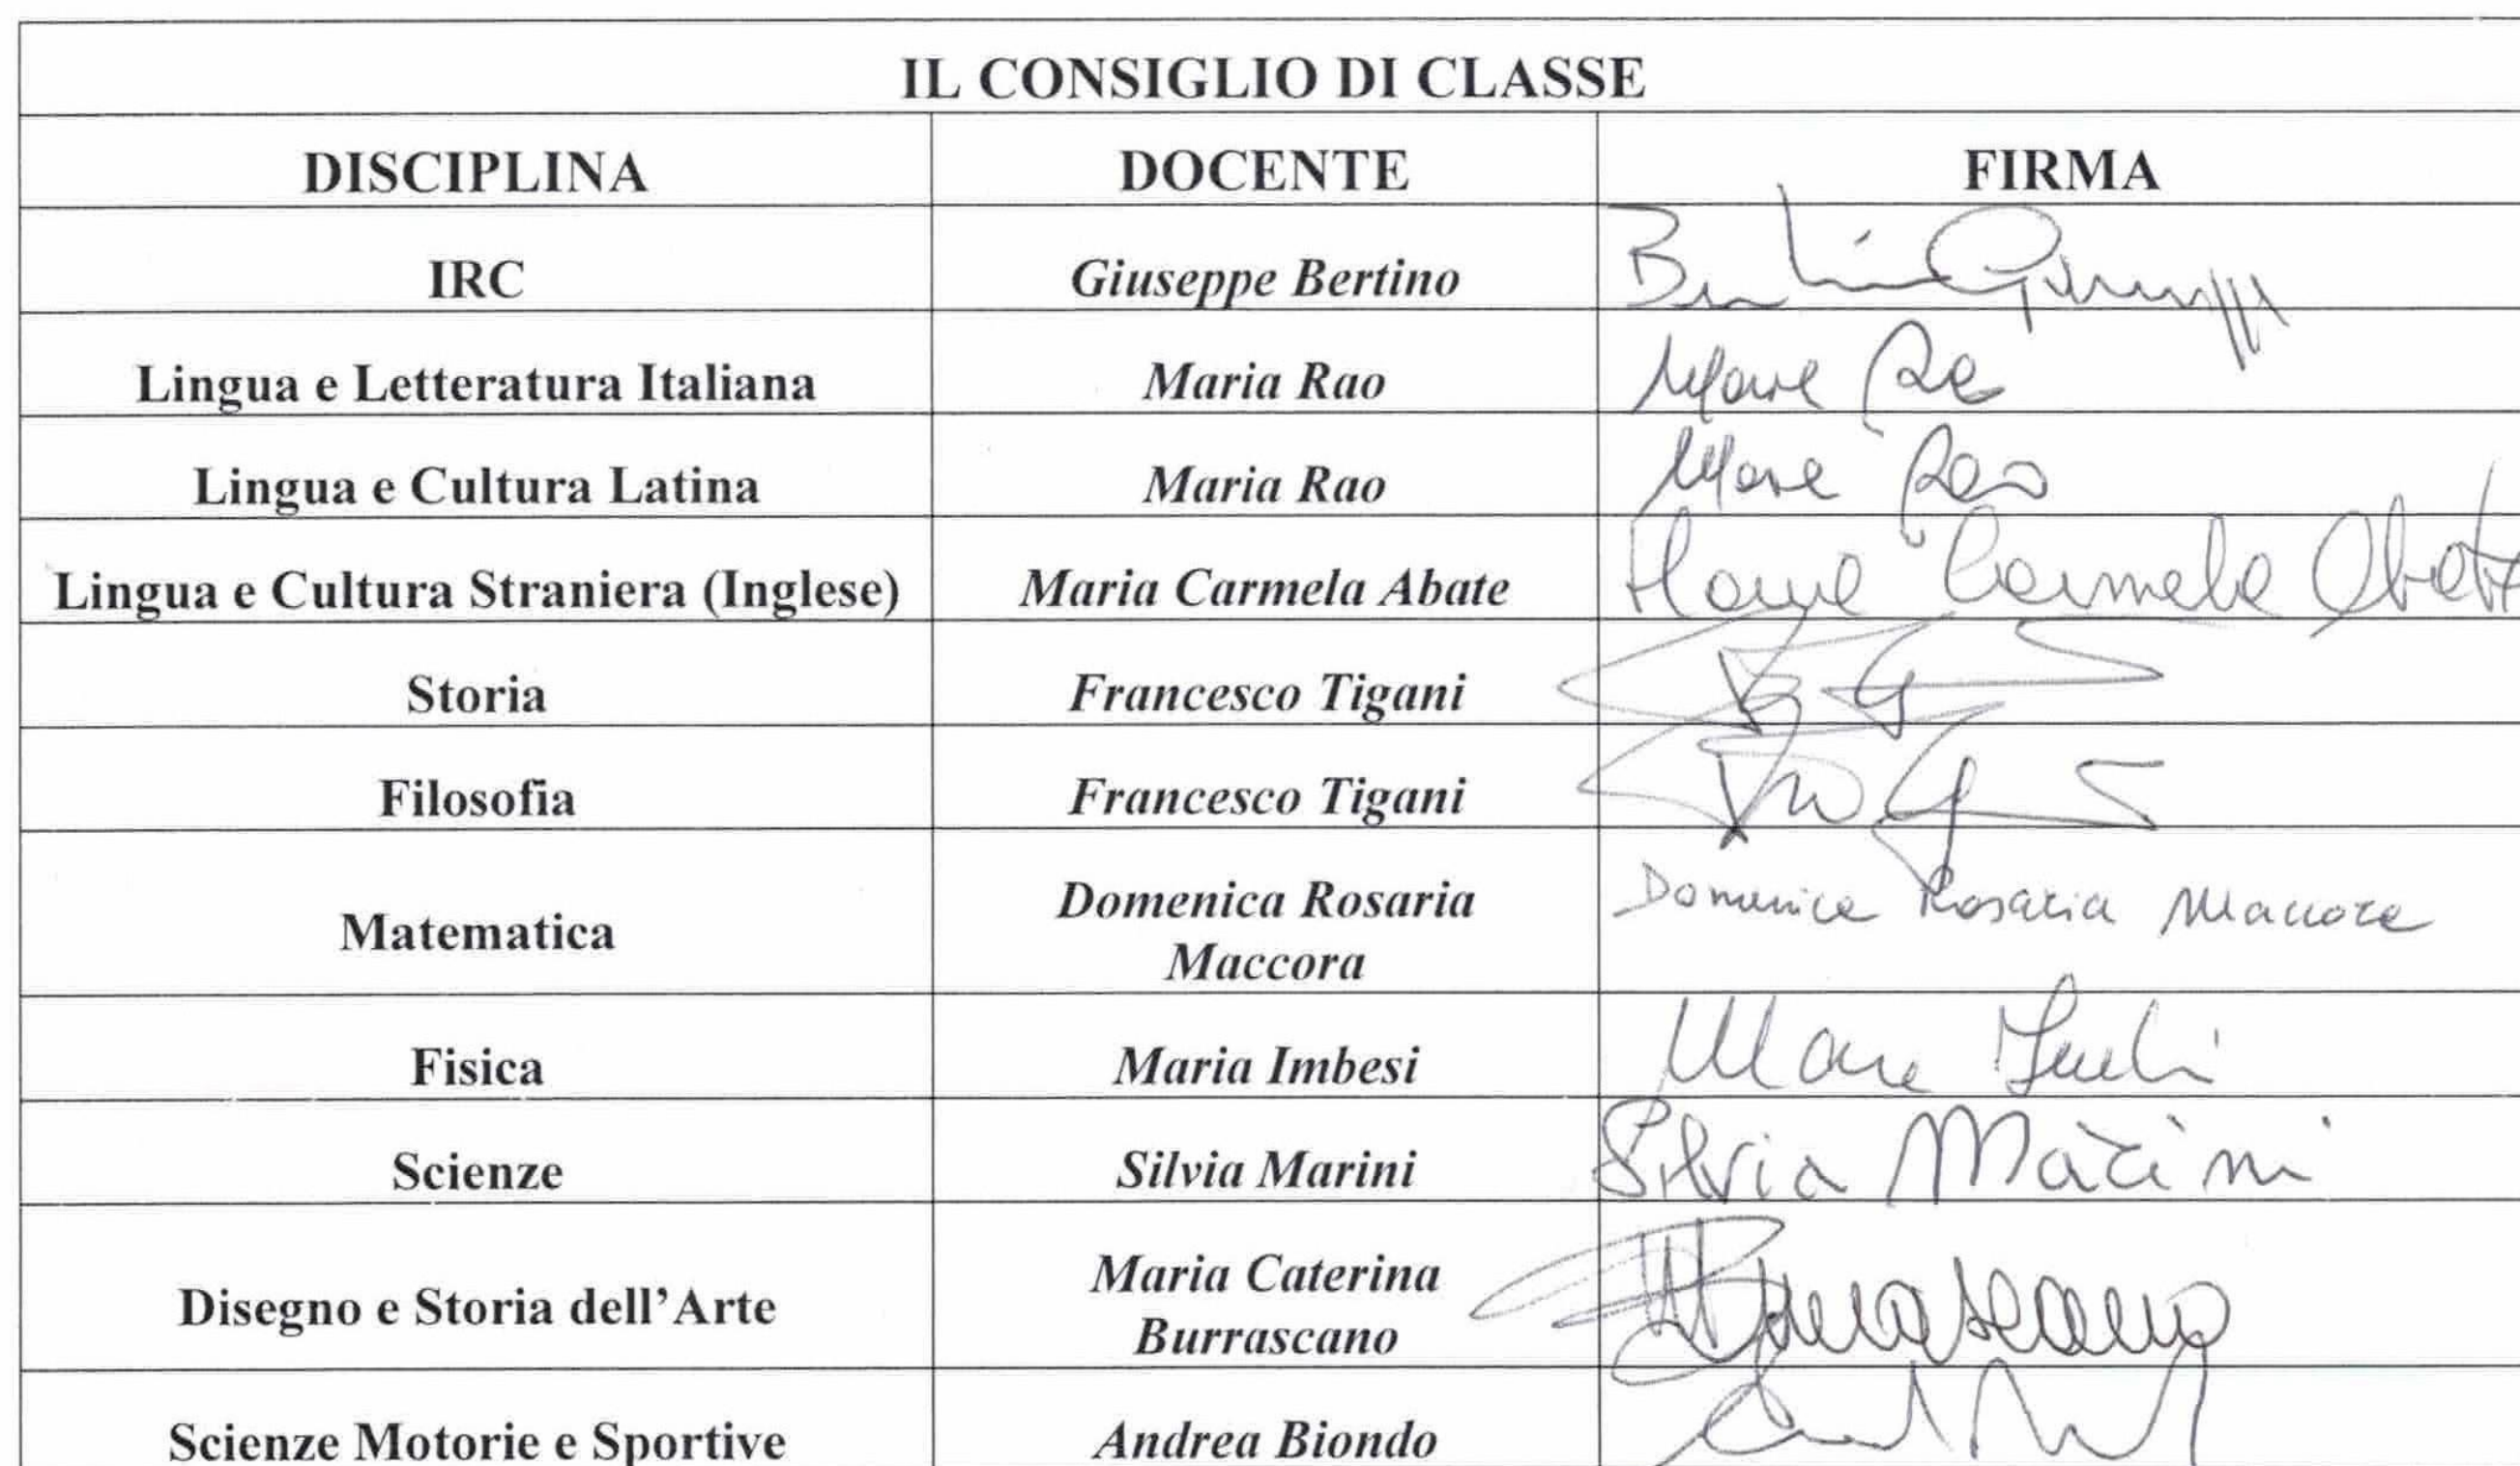 IL CONSIGLIO DI CLASSE
DISCIPLINA DOCENTE FIRMA
IRC Giuseppe Bertino
Lingua e Letteratura Italiana Maria Rao
Lingua e Cultura Latina Maria Rao Rao
Lingua e Cultura Straniera (Inglese) Maria Carmela Abate Maria Carmela Abate
Storia Francesco Tigani
Filosofia Francesco Tigani
Matematica Domenica Rosaria Maccora Domenica Rosaria Maccora
Fisica Maria Imbesi
Scienze Silvia Marini Silvia Marini
Disegno e Storia dell'Arte Maria Caterina Burrascano
Scienze Motorie e Sportive Andrea Biondo